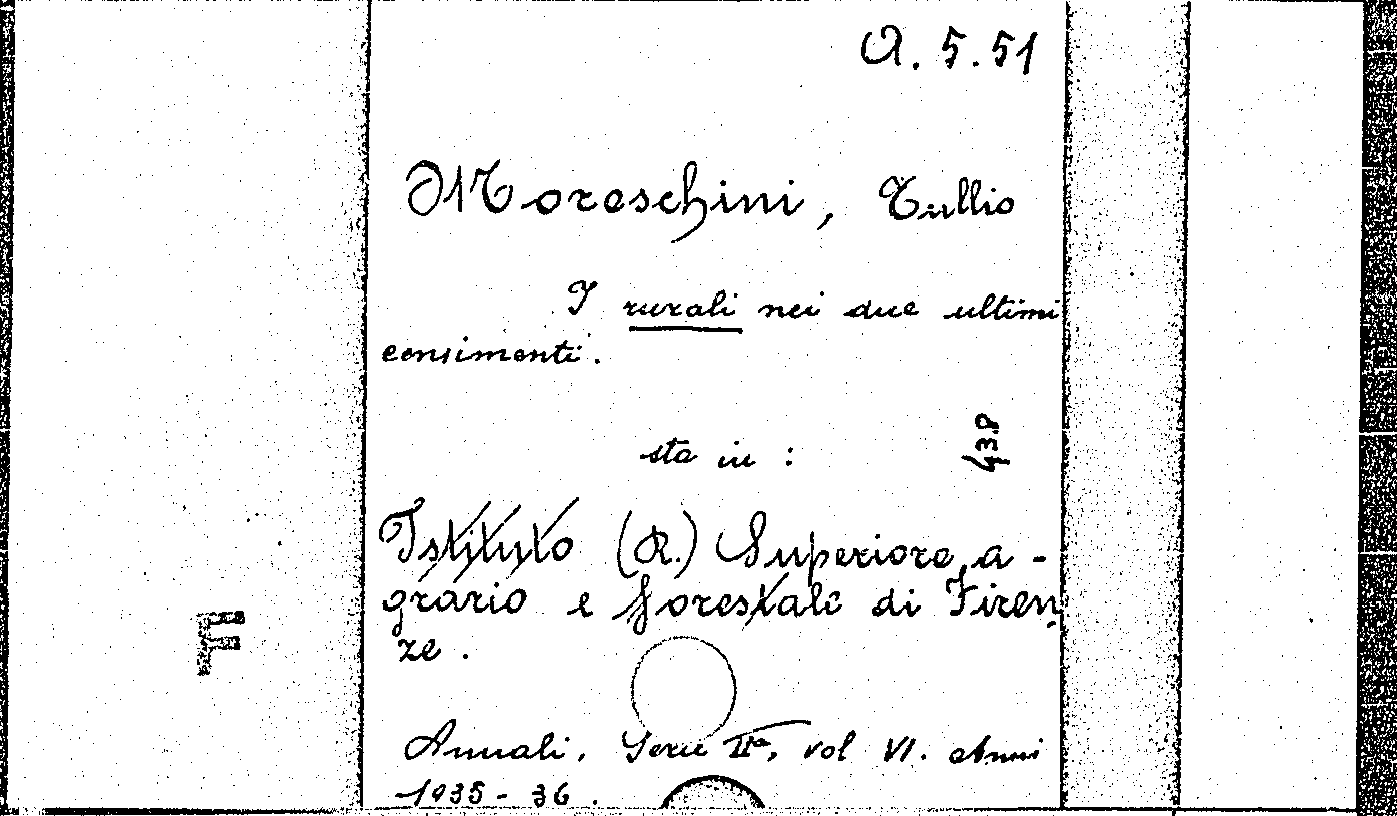 A. 5.51
Moreschini, Tullio
I rurali nei due ultimi
censimenti.
sta in :
438
Istituto (R.) Superiore a-
grario e forestale di Firen
ze.
F
Annali, Serie IIa, vol VI. Anni
1935-36.